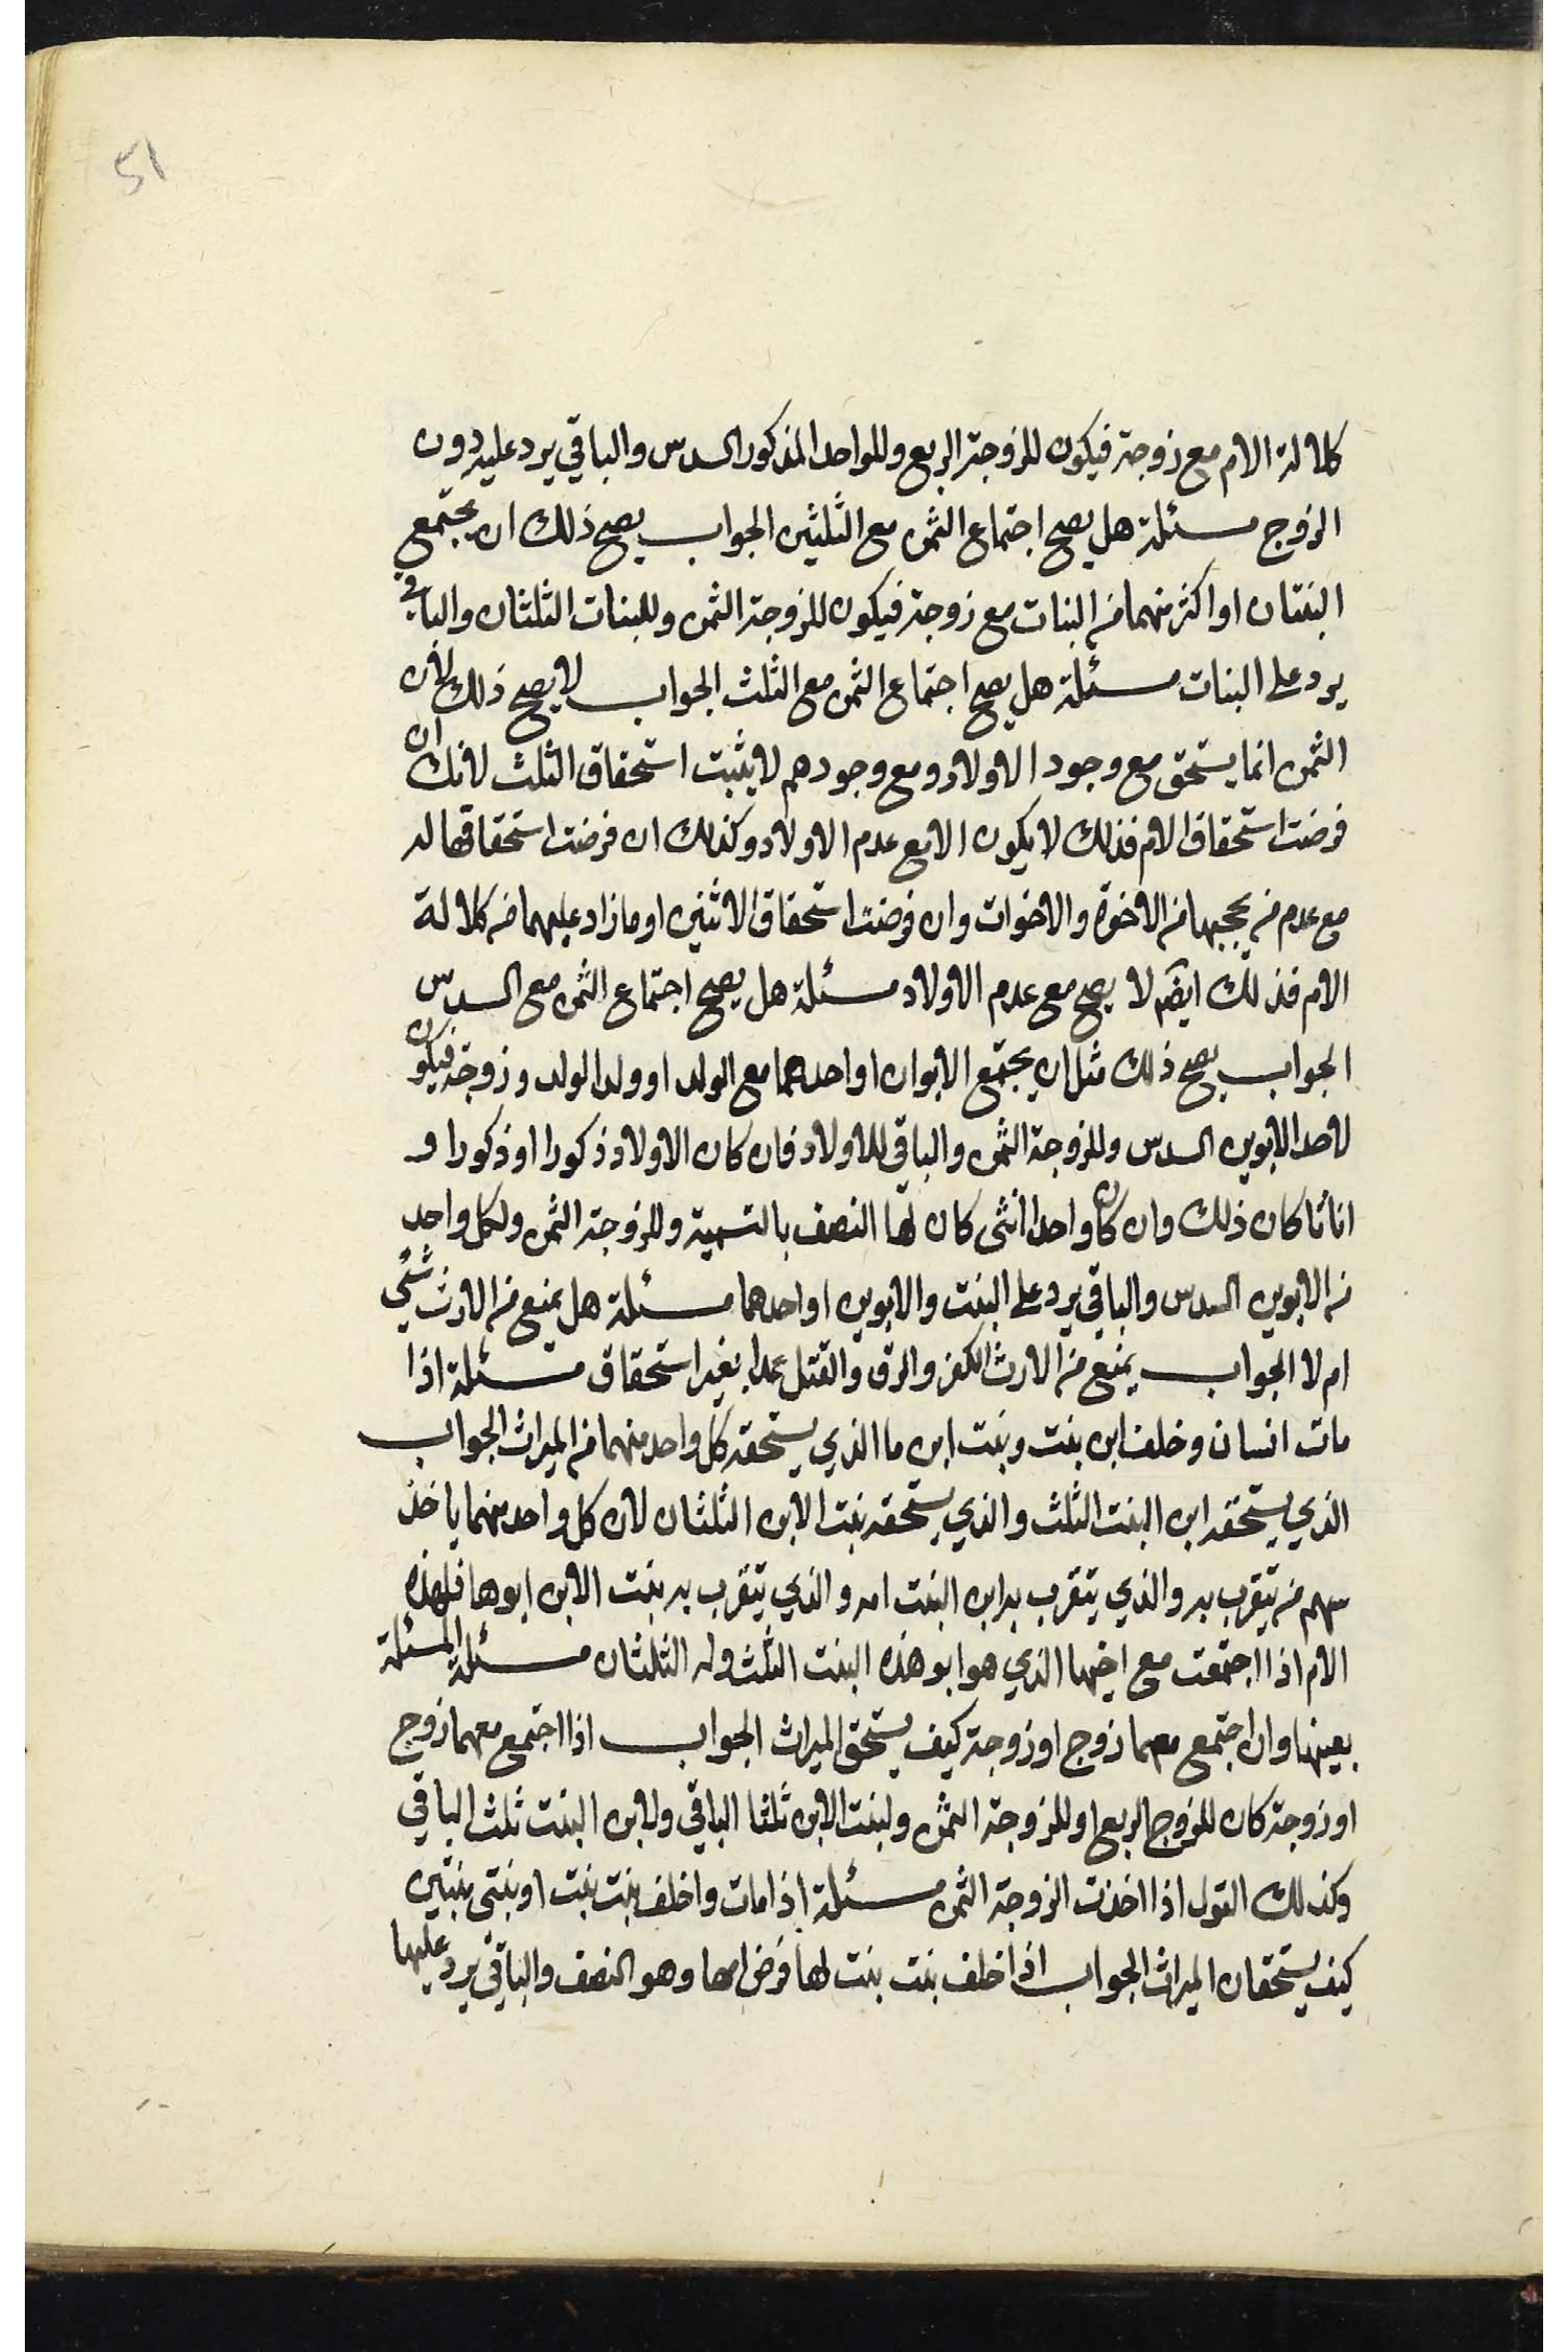 51
كلالة الام مع زوجة فيكون للزوجة الربع وللواحد المذكور السدس والباقي يرد عليه دون
الزوج مسئلة هل يصح اجتماع الثمن مع الثلثين الجواب يصح ذلك ان يجتمع
البنتان او اكثر منهما من البنات مع زوجة فيكون للزوجة الثمن وللبنات الثلثان والباقي
يرد على البنات مسئلة هل يصح اجتماع الثمن مع الثلث الجواب لا يصح ذلك لان
الثمن انما يستحق مع وجود الاولاد ومع وجودهم لا يثبت استحقاق الثلث لانك ان
فرضت استحقاق الام فذلك لا يكون الا مع عدم الاولاد وكذلك ان فرضت استحقاقها له
مع عدم من يحجبها من الاخوة والاخوات وان فرضت استحقاق الاثنين او ما زاد عليهما من كلالة
الام فذلك ايضا لا يصح مع عدم الاولاد مسئلة هل يصح اجتماع الثمن مع السدس
الجواب يصح ذلك مثل ان يجتمع الابوان او احدهما مع الولد او ولد الولد وزوجة فيكون
لاحد الابوين السدس وللزوجة الثمن والباقي للاولاد فان كان الاولاد ذكورا او ذكورا و
اناثا كان ذلك وان كان واحدا انثى كان لها النصف بالتسمية وللزوجة الثمن ولكل واحد
من الابوين السدس والباقي يرد على البنت والابوين او احدهما مسئلة هل يمنع من الارث شئ
ام لا الجواب يمنع من الارث الكفر والرق والقتل عمدا بغير استحقاق مسئلة اذا
مات انسان وخلف ابن بنت وبنت ابن ما الذي يستحقه كل واحد منهما من الميراث الجواب
الذي يستحقه ابن البنت الثلث والذي يستحقه بنت الابن الثلثان لان كل واحد منهما ياخذ
سهم من يتقرب به والذي يتقرب به ابن البنت امه والذي يتقرب به بنت الابن ابوها فلهذه
الام اذا اجتمعت مع اخيها الذي هو ابو هذه البنت الثلث وله الثلثان مسئلة المسئلة
بعينها وان اجتمع معهما زوج او زوجة كيف يستحق الميراث الجواب اذا اجتمع معهما زوج
او زوجة كان للزوج الربع او للزوجة الثمن ولبنت الابن ثلثا الباقي ولابن البنت ثلث الباقي
وكذلك القول اذا اخذت الزوجة الثمن مسئلة اذا مات واخلف بنت بنت او بنتى بنتين
كيف يستحقان الميراث الجواب اذا خلف بنت بنت لها فرض امها وهو النصف والباقي يرد عليها